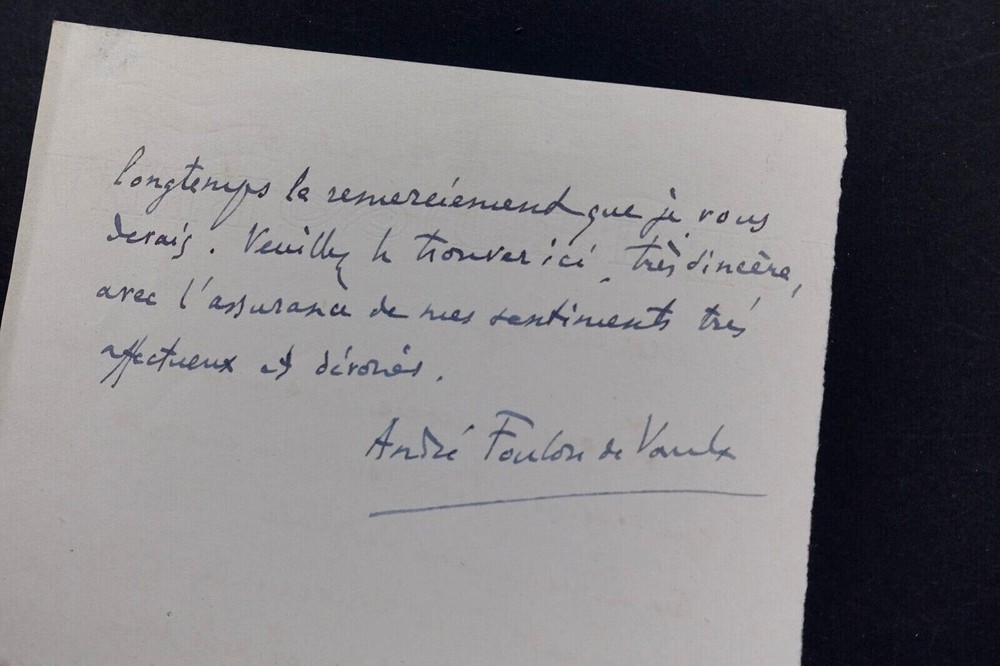 longtemps le remerciement que je vous
devais. Veuillez le trouver ici, très sincère,
avec l'assurance de mes sentiments très
affectueux et dévoués.
André Foulon de Vaulx